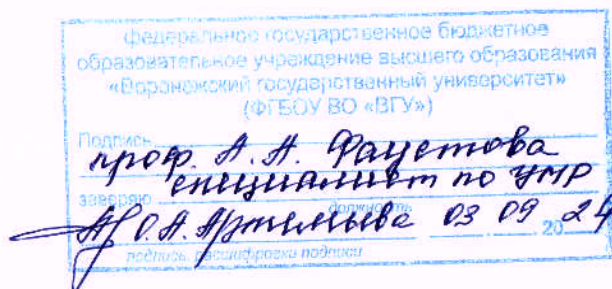 федеральное государственное бюджетное
образовательное учреждение высшего образования
«Воронежский государственный университет»
(ФГБОУ ВО «ВГУ»)
Подпись
проф. А. А. Фаустова
специалист по УМР
заверяю
должность
О.А. Артемьева 03 09 2024
подпись, расшифровка подписи